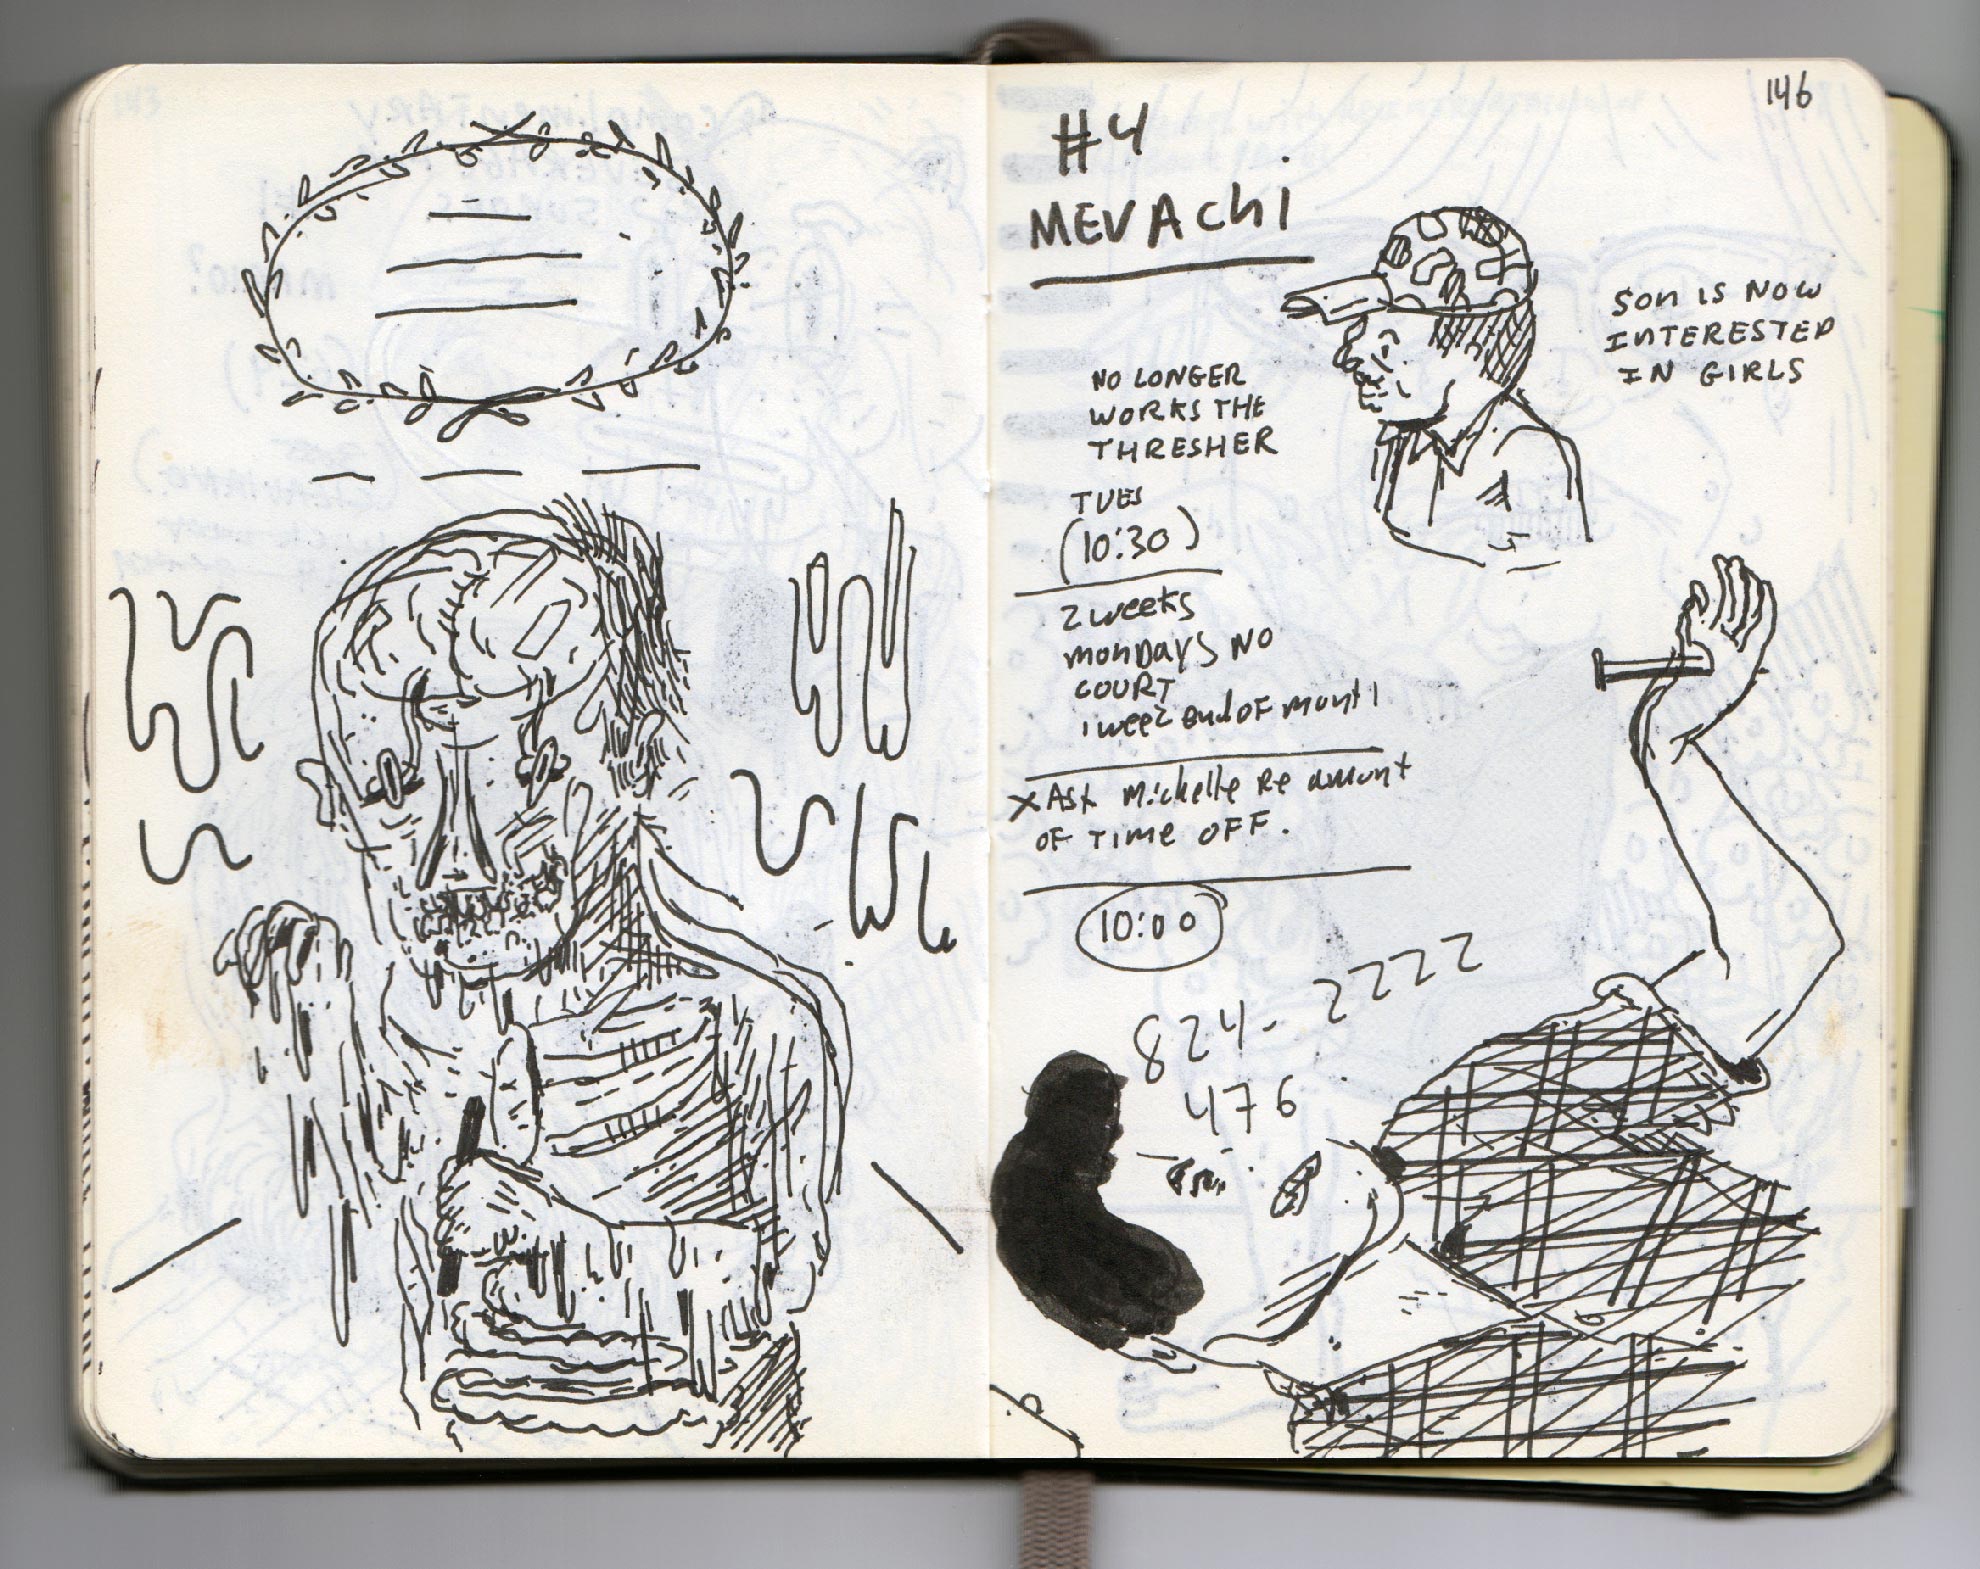 146
#4
MEVAChI
SON IS NOW
INTERESTED
IN GIRLS
NO LONGER
WORKS THE
THRESHER
TUES
(10:30)
2 weeks
monDAYS NO
COURT
1 week end OF month
x Ask Michelle Re amount
OF Time OFF.
10:00
824-2222
476